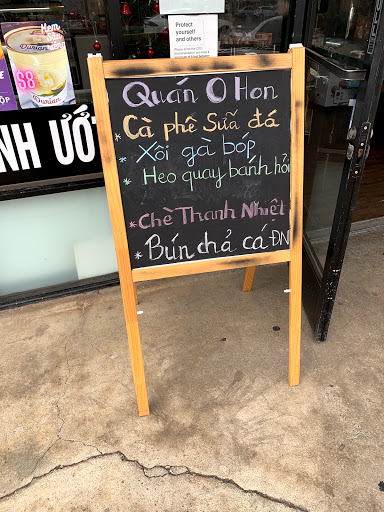 Durian
$8
Durian
NH ƯỚT
Protect
yourself
and others
Quán O Hon
* Cà phê Sữa đá
* Xôi gà bóp
* Heo quay bánh hỏi
* Chè Thanh Nhiệt
* Bún chả cá ĐN